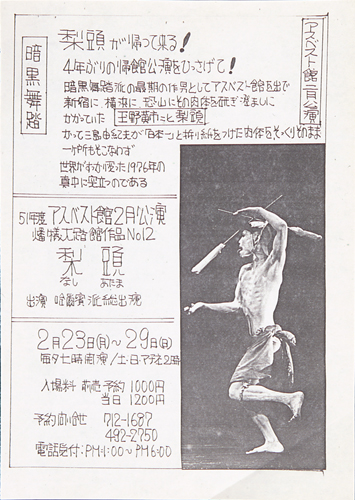 アスベスト館二月公演
暗黒舞踏
梨頭が帰って来る!
4年ぶりの帰館公演をひっさげて!
暗黒舞踏派の最期の作男としてアスベスト館を出で
新宿に横浜に恐山にその肉体を研ぎ澄ましに
かかっていた 玉野黄市こと梨頭
かつて三島由紀夫が「日本一」と折り紙をつけた肉体をそっくりそのまま
一ヶ所もそこなわず
世界がすっかり変った1976年の
真中に突立つのである
51年度 アスベスト館2月公演
燔犠大踏鑑作品No12
梨頭
なし あたま
出演 哈爾濱派総出魂
2月23日(月)~29日(日)
毎夕七時開演/土・日マチネ2時
入場料 前売予約 1000円
当日 1200円
予約向い合せ 712-1687
492-2750
電話受付:PM・1:00~PM6:00